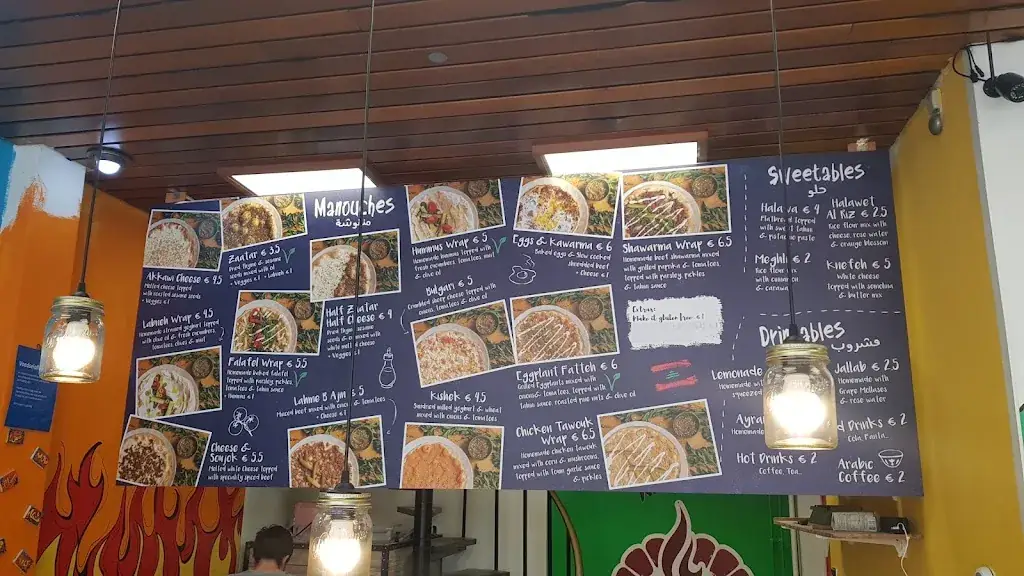 Manouches
منقوشة
Zaatar € 3.5
Fried thyme & sesame
seeds mixed with oil
- Veggies € 1
Akkawi Cheese € 4.5
Melted cheese topped
with roasted sesame seeds
- Veggies € 1
Labneh Wrap € 4.5
Homemade strained yoghurt topped
with olive oil & fresh cucumbers,
tomatoes, olives & mint
Half Zaatar
Half Cheese € 4
Fried thyme, sesame
seeds mixed with oil &
white melted cheese
- Veggies € 1
Falafel Wrap € 5.5
Homemade baked falafel
topped with parsley, pickles,
tomatoes & tahini sauce
+ Hummus € 1
Cheese &
Soujok € 5.5
Melted white cheese topped
with specialty spiced beef
Lahme B Ajin € 5
Minced beef mixed with onions & tomatoes
- Cheese € 1
Hummus Wrap € 5
Homemade hummus topped with
fresh cucumbers, tomatoes, mint
& olive oil
Bulgari € 5
Crumbled sheep cheese topped with
onions, tomatoes & olive oil
Kishek € 4.5
Sundried milled yoghurt & wheat
mixed with onions & tomatoes
Eggs & Kawarma € 6
Baked eggs & slow cooked
shredded beef
+ Cheese € 1
Eggplant Fatteh € 6
Grilled eggplants mixed with
onions, tomatoes, topped with
tahini sauce, roasted pine nuts & olive oil
Chicken Tawouk
Wrap € 6.5
Homemade chicken tawouk
mixed with corn & mushrooms,
topped with toum garlic sauce
& pickles
Shawarma Wrap € 6.5
Homemade beef shawarma mixed
with grilled paprika & tomatoes,
topped with parsley, pickles
& tahini sauce
Extras:
Make it gluten free € 1
Sweetables
حلو
Halawa € 4
topped
with sweet tahini
& pistachio paste
Halawet
Al Riz € 2.5
Rice flour mix with
cheese, rose water
& orange blossom
Meghli € 2
Rice flour mix
with cinnamon
& caraway
Knefeh € 5
White cheese
topped with semolina
& butter mix
Drinkables
مشروب
Lemonade
Homemade
Jallab € 2.5
Date, Grape Molasses
& rose water
Ayran
Homemade
Drinks € 2
Cola, Fanta..
Hot Drinks € 2
Coffee, Tea...
Arabic
Coffee € 2